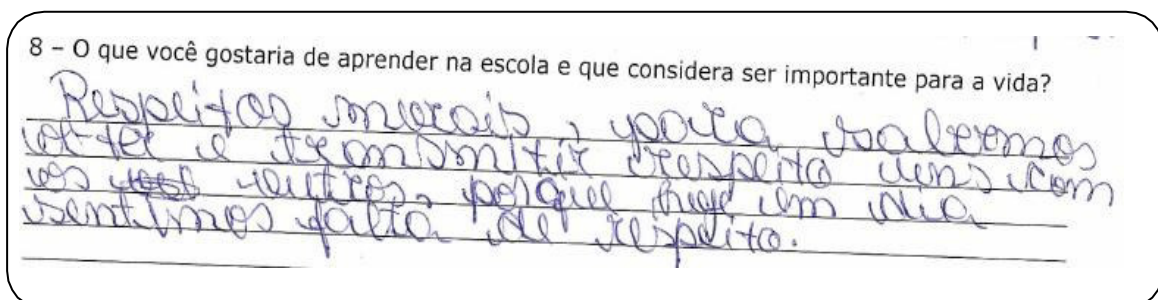 8 – O que você gostaria de aprender na escola e que considera ser importante para a vida?
Respeitos morais, para sabermos
obter e transmitir respeito uns com
os outros, porque hoje em dia
sentimos falta de respeito.